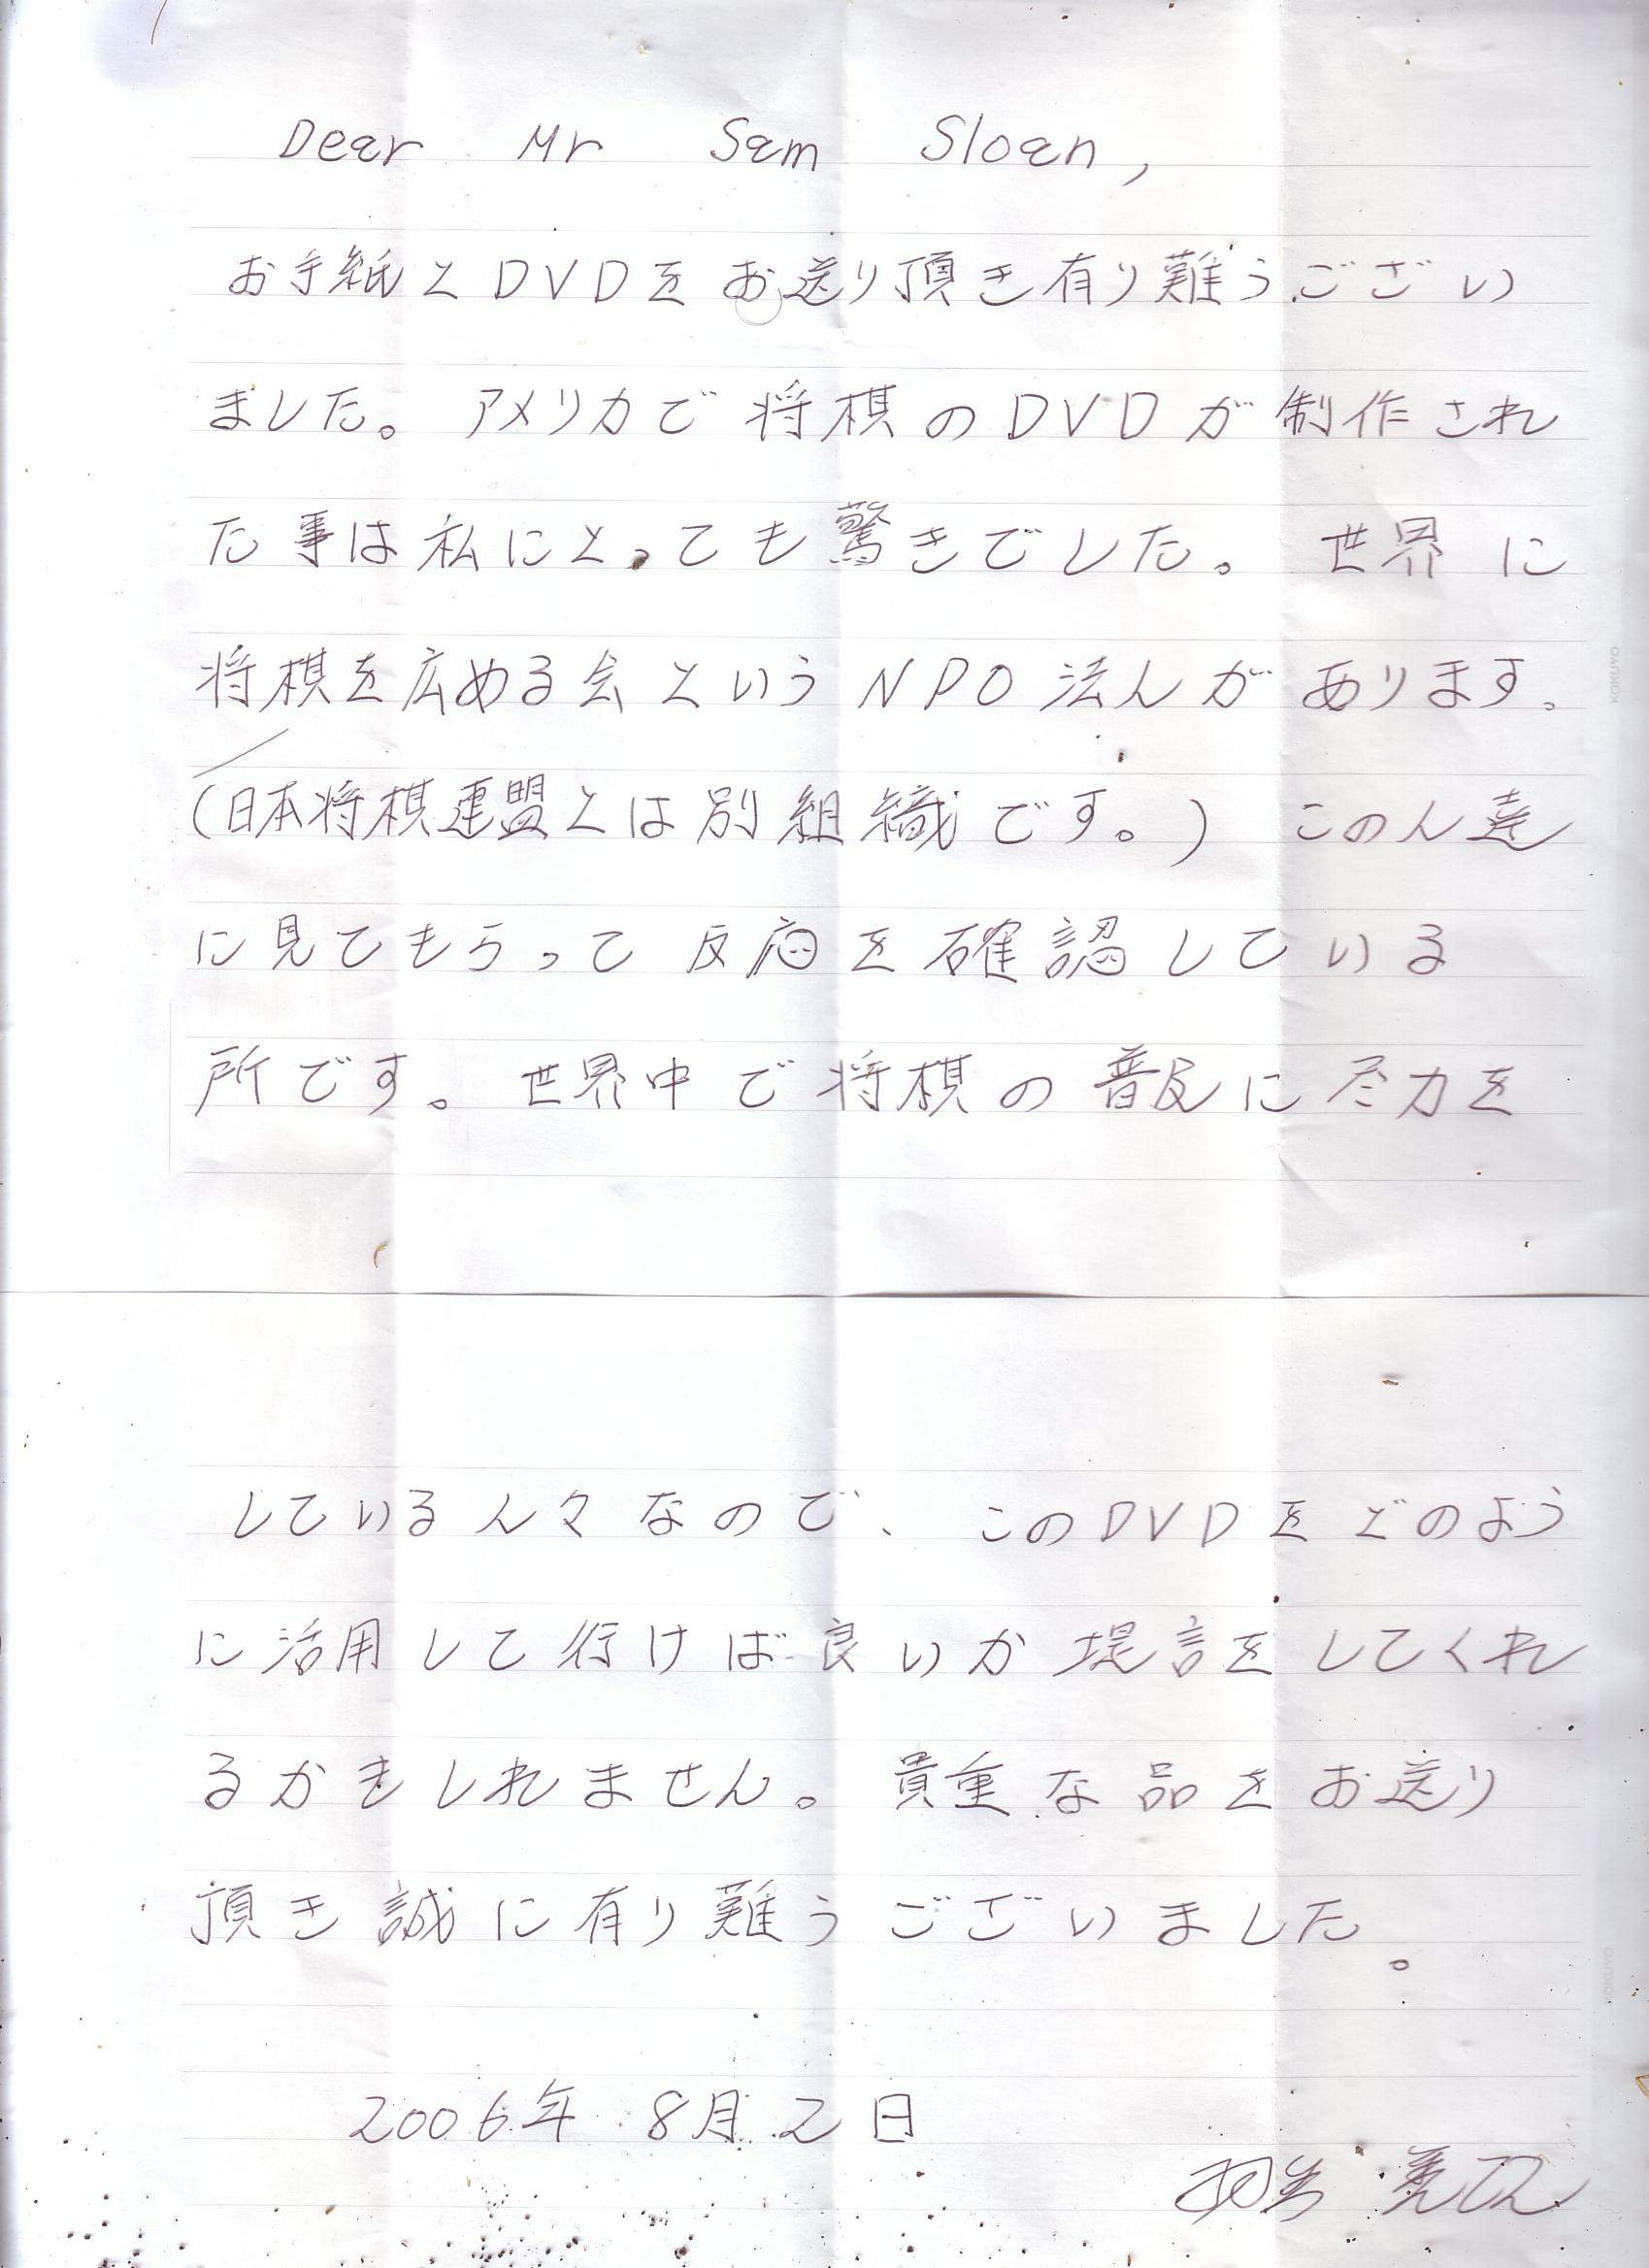 Dear Mr Sam Sloan,
お手紙とDVDをお送り頂き有り難うござい
ました。アメリカで将棋のDVDが制作され
た事は私にとっても驚きでした。世界に
将棋を広める会というNPO法人があります。
(日本将棋連盟とは別組織です。) この人達
に見てもらって反応を確認している
所です。世界中で将棋の普及に尽力を
している人々なので、このDVDをどのよう
に活用して行けば良いか提言をしてくれ
るかもしれません。貴重な品をお送り
頂き誠に有り難うございました。
2006年 8月 2日
KOKUYO
KOKUYO